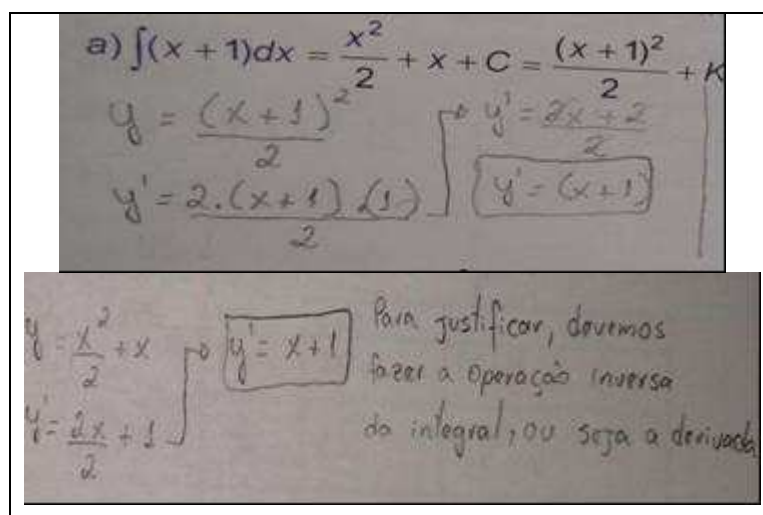 a) ∫(x + 1)dx = x²/2 + x + C = (x + 1)²/2 + K
y = (x + 1)²/2
y' = 2.(x + 1).(1)/2 → y' = 2x + 2/2
y' = (x + 1)
y = x²/2 + x
y' = 2x/2 + 1 → y' = x + 1
Para justificar, devemos
fazer a operação inversa
da integral, ou seja a derivada